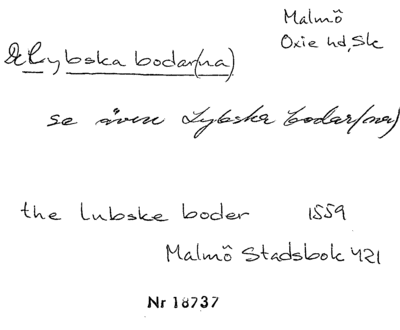 Malmö
Oxie hd, Sk
De Lybska bodar(na)
se även Lybska bodar(na)
the lubske boder 1559
Malmö Stadsbok 421
Nr 18737